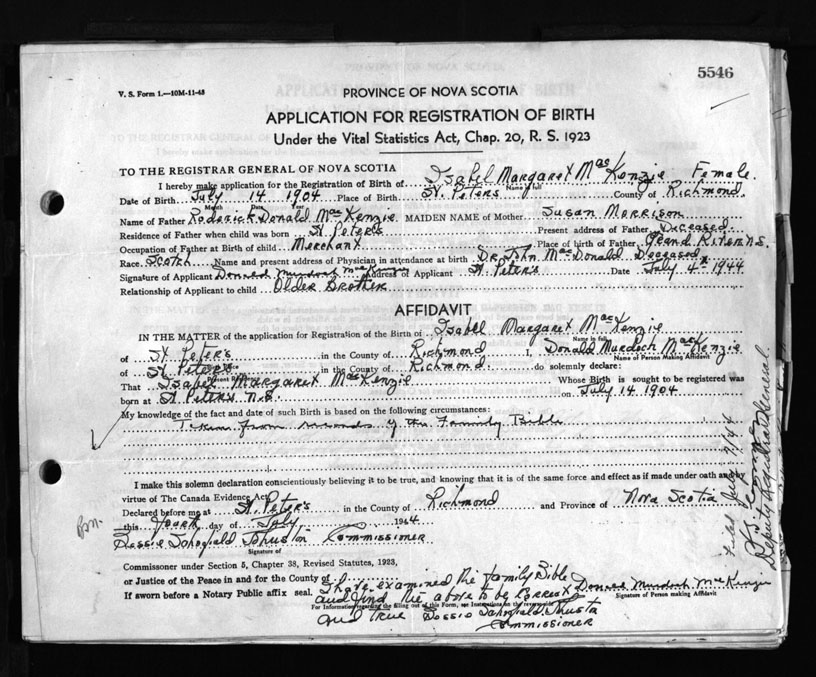 5546
V. S. Form 1.—10M-11-43
PROVINCE OF NOVA SCOTIA
APPLICATION FOR REGISTRATION OF BIRTH
Under the Vital Statistics Act, Chap. 20, R. S. 1923
TO THE REGISTRAR GENERAL OF NOVA SCOTIA
I hereby make application for the Registration of Birth of Isabel Margaret MacKenzie Female.
Name in full
Date of Birth July 14 1904 Place of Birth St. Peters County of Richmond
Month Date Year
Name of Father Roderick Donald MacKenzie MAIDEN NAME of Mother Susan Morrison
Residence of Father when child was born St Peter's Present address of Father Deceased
Occupation of Father at Birth of child Merchant Place of birth of Father Grand River N.S.
Race Scotch Name and present address of Physician in attendance at birth Dr John MacDonald Deceased
Signature of Applicant Donald Murdoch MacKenzie Address of Applicant St Peter's Date July 4th 1944
Relationship of Applicant to child Older Brother
AFFIDAVIT
IN THE MATTER of the application for Registration of the Birth of Isabel Margaret MacKenzie
Name in full
of St Peter's in the County of Richmond I, Donald Murdoch MacKenzie
Name of Person Making Affidavit
of St Peter's in the County of Richmond do solemnly declare:
That Isabel Margaret MacKenzie Whose Birth is sought to be registered was
born at St Peters N.S. on July 14 1904
My knowledge of the fact and date of such Birth is based on the following circumstances:
Taken from records of the Family Bible
I make this solemn declaration conscientiously believing it to be true, and knowing that it is of the same force and effect as if made under oath and by
virtue of The Canada Evidence Act.
Declared before me at St. Peter's in the County of Richmond and Province of Nova Scotia
this fourth day of July 1944
Commissioner
Signature of
Commissioner under Section 5, Chapter 38, Revised Statutes, 1923,
or Justice of the Peace in and for the County of
If sworn before a Notary Public affix seal.
I have examined the family Bible
and find the above to be correct
and true
Commissioner
Donald Murdoch MacKenzie
Signature of Person making Affidavit
For Information regarding the filling out of this Form, see Instructions on the reverse side
Deputy Registrar General